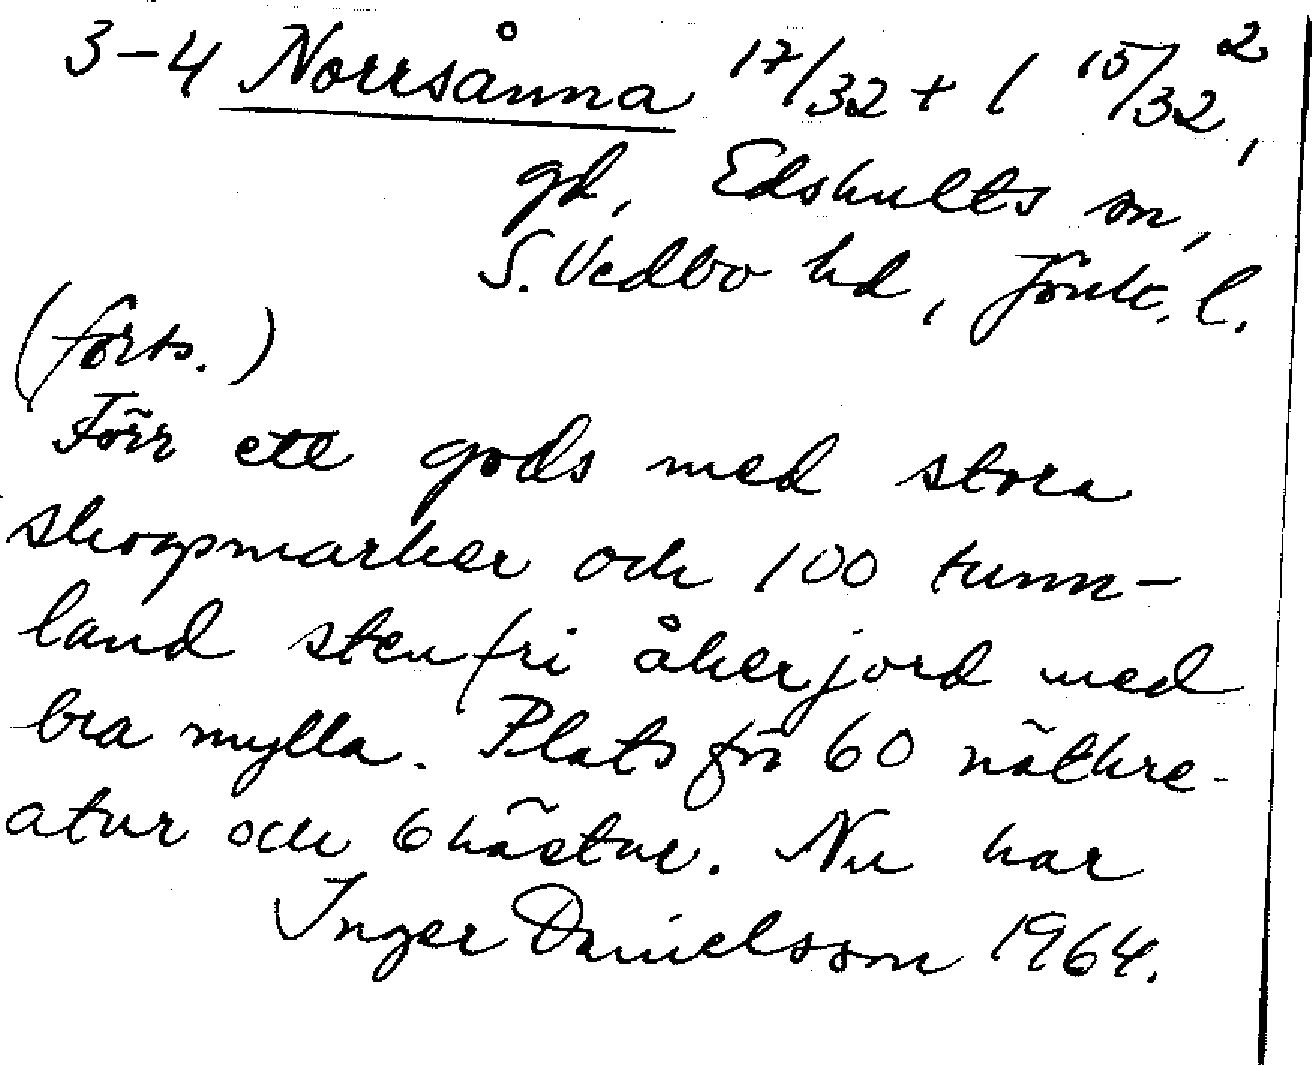 3-4 Norrsånna 17/32 + 1 15/32, 2
gd, Edshults sn,
S. Vedbo hd, Jönk. l.
(forts.)
Förr ett gods med stora
skogsmarker och 100 tunn-
land stenfri åkerjord med
bra mylla. Plats för 60 nötkre-
atur och 6 hästar. Nu har
Inger Danielsson 1964.